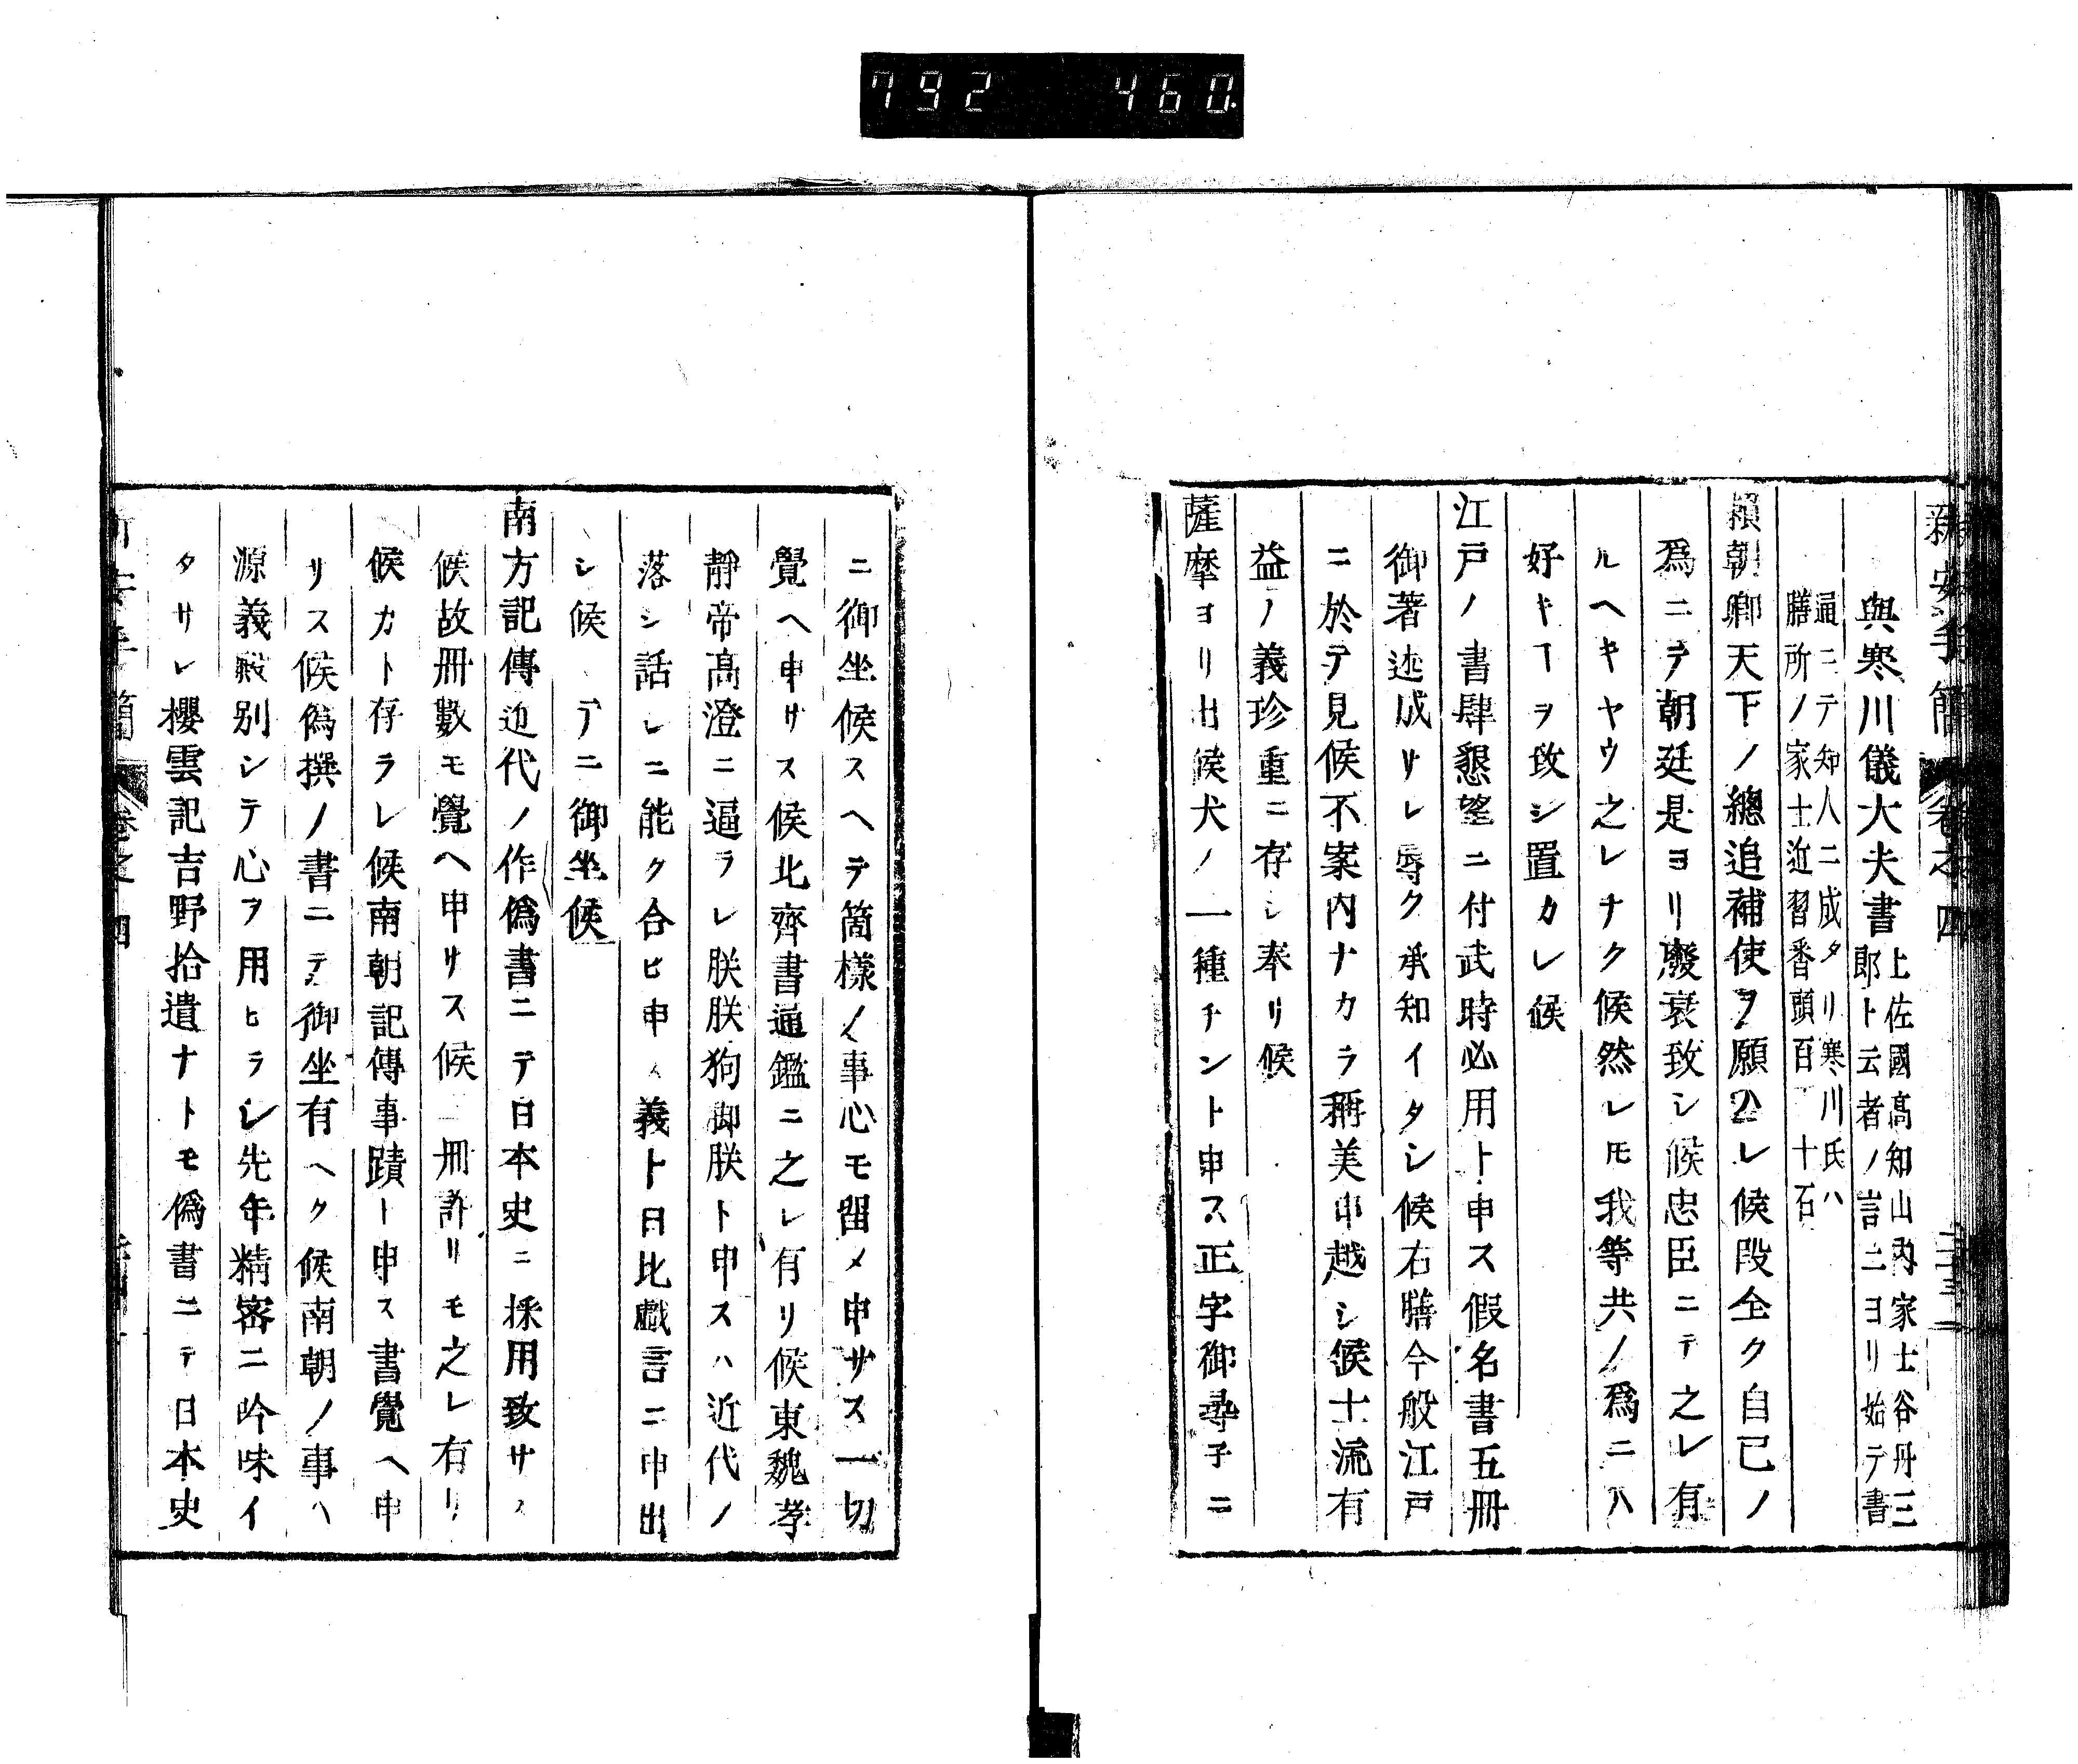 792 460
新安手簡 卷之四
與寒川儀大夫書
上佐國髙知山内家士谷丹三
郎ト云者ノ言ニヨリ始テ書
通ニテ知人ニ成タリ寒川氏ハ
膳所ノ家士近習番頭百 十石
頼朝卿天下ノ總追補使ヲ願ハレ候段全ク自已ノ
爲ニテ朝廷是ヨリ廢衰致シ候忠臣ニテ之レ有
ルヘキヤウ之レナク候然レ𪜈我等共ノ爲ニハ
好キヿヲ致シ置カレ候
江戸ノ書肆懇望ニ付武時必用ト申ス假名書五冊
御著述成サレ辱ク承知イタシ候右膳今般江戸
ニ於テ見候不案内ナカラ稱美申越シ候士流有
益ノ義珍重ニ存シ奉リ候
薩摩ヨリ出候犬ノ一種チント申ス正字御尋子ニ
ニ御坐候スヘテ箇樣〱事心モ留メ申サス一切
覺ヘ申サス候北齊書通鑑ニ之レ有リ候東魏孝
靜帝髙澄ニ逼ラレ朕朕狗御朕ト申スハ近代ノ
落シ話レニ能ク合ヒ申ス義ト日比戯言ニ申出
シ候 テニ御坐候
南方記傳近代ノ作僞書ニテ日本史ニ採用致サス
候故冊數モ覺ヘ申サス候二冊許リモ之レ有リ
候カト存ラレ候南朝記傳事蹟ト申ス書覺ヘ申
リス候僞撰ノ書ニテ御坐有ヘク候南朝ノ事ハ
源義殿别シテ心ヲ用ヒラレ先年精審ニ吟味イ
タサレ櫻雲記吉野拾遺ナトモ僞書ニテ日本史
卷之四